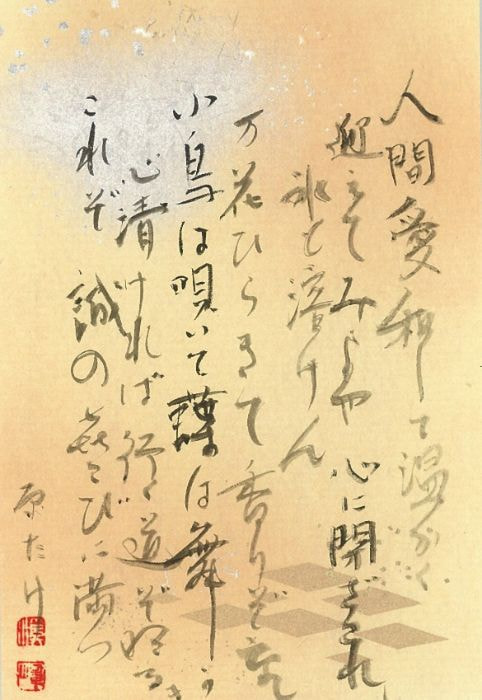 人間愛和して温かく
迎えてみよや 心に閉ざされ
氷も溶けん
万花ひらきて香りぞ高し
小鳥は唄いて蝶は舞う
心清ければ行く道ぞ明るき
これぞ 誠の喜びに満つ
原たけ